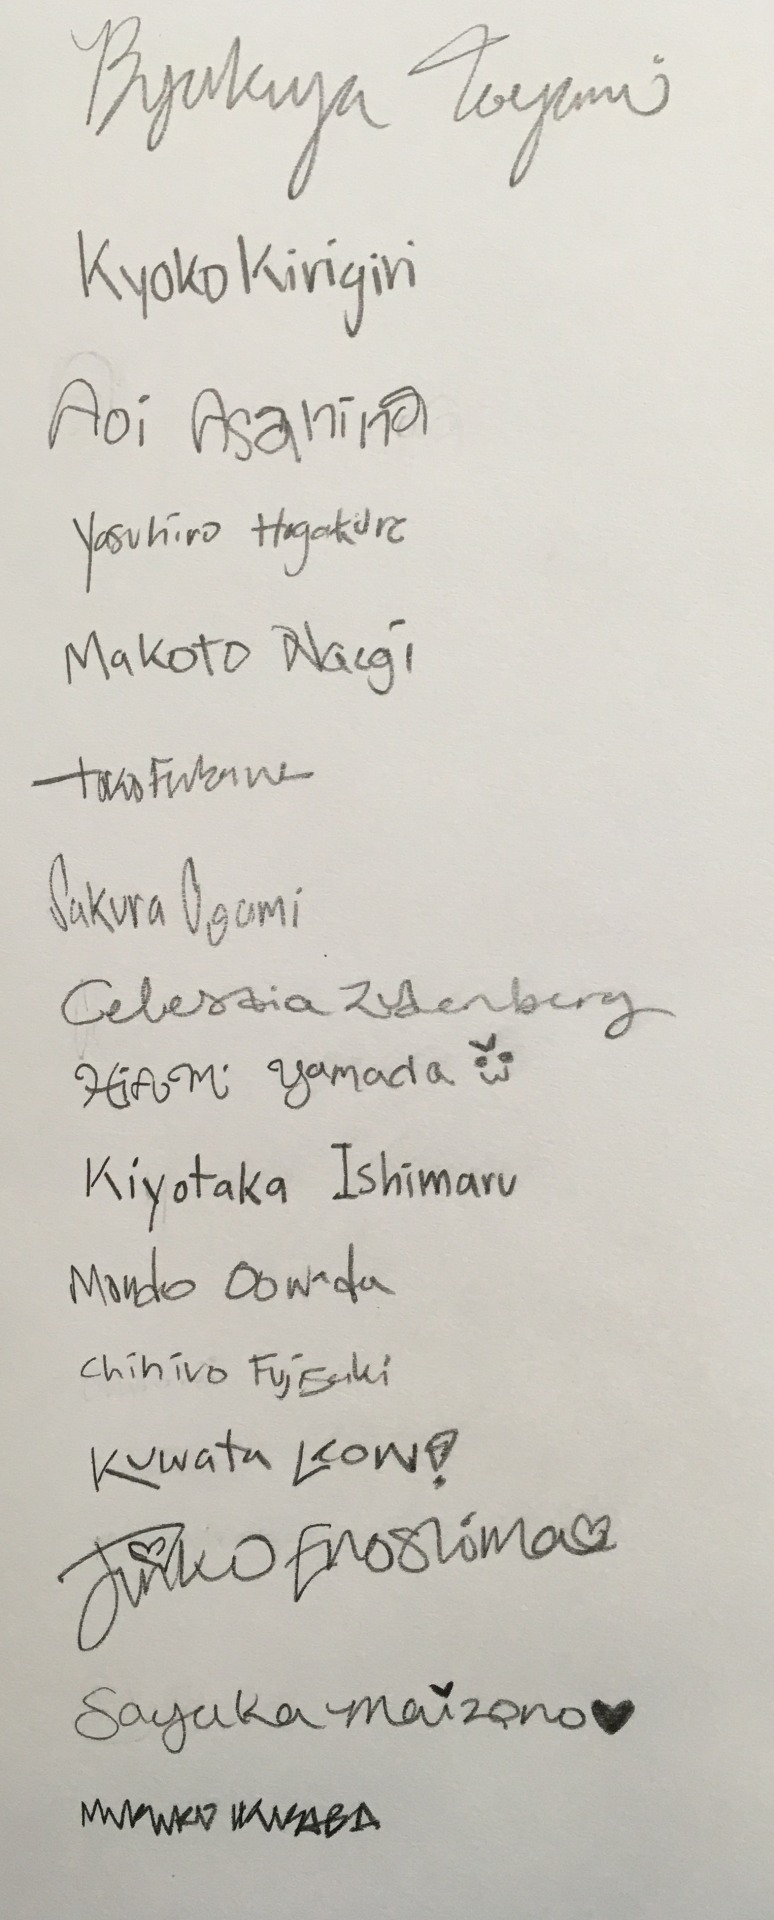 Byakuya Togami
Kyoko Kirigiri
Aoi Asahina
Yasuhiro Hagakure
Makoto Naegi
Toko Fukawa
Sakura Ogami
Celestia Ludenberg
Hifumi Yamada
Kiyotaka Ishimaru
Mondo Oowada
Chihiro Fujisaki
Kuwata Leon!
Junko Enoshima
Sayaka Maizono
MUKURO IKUSABA